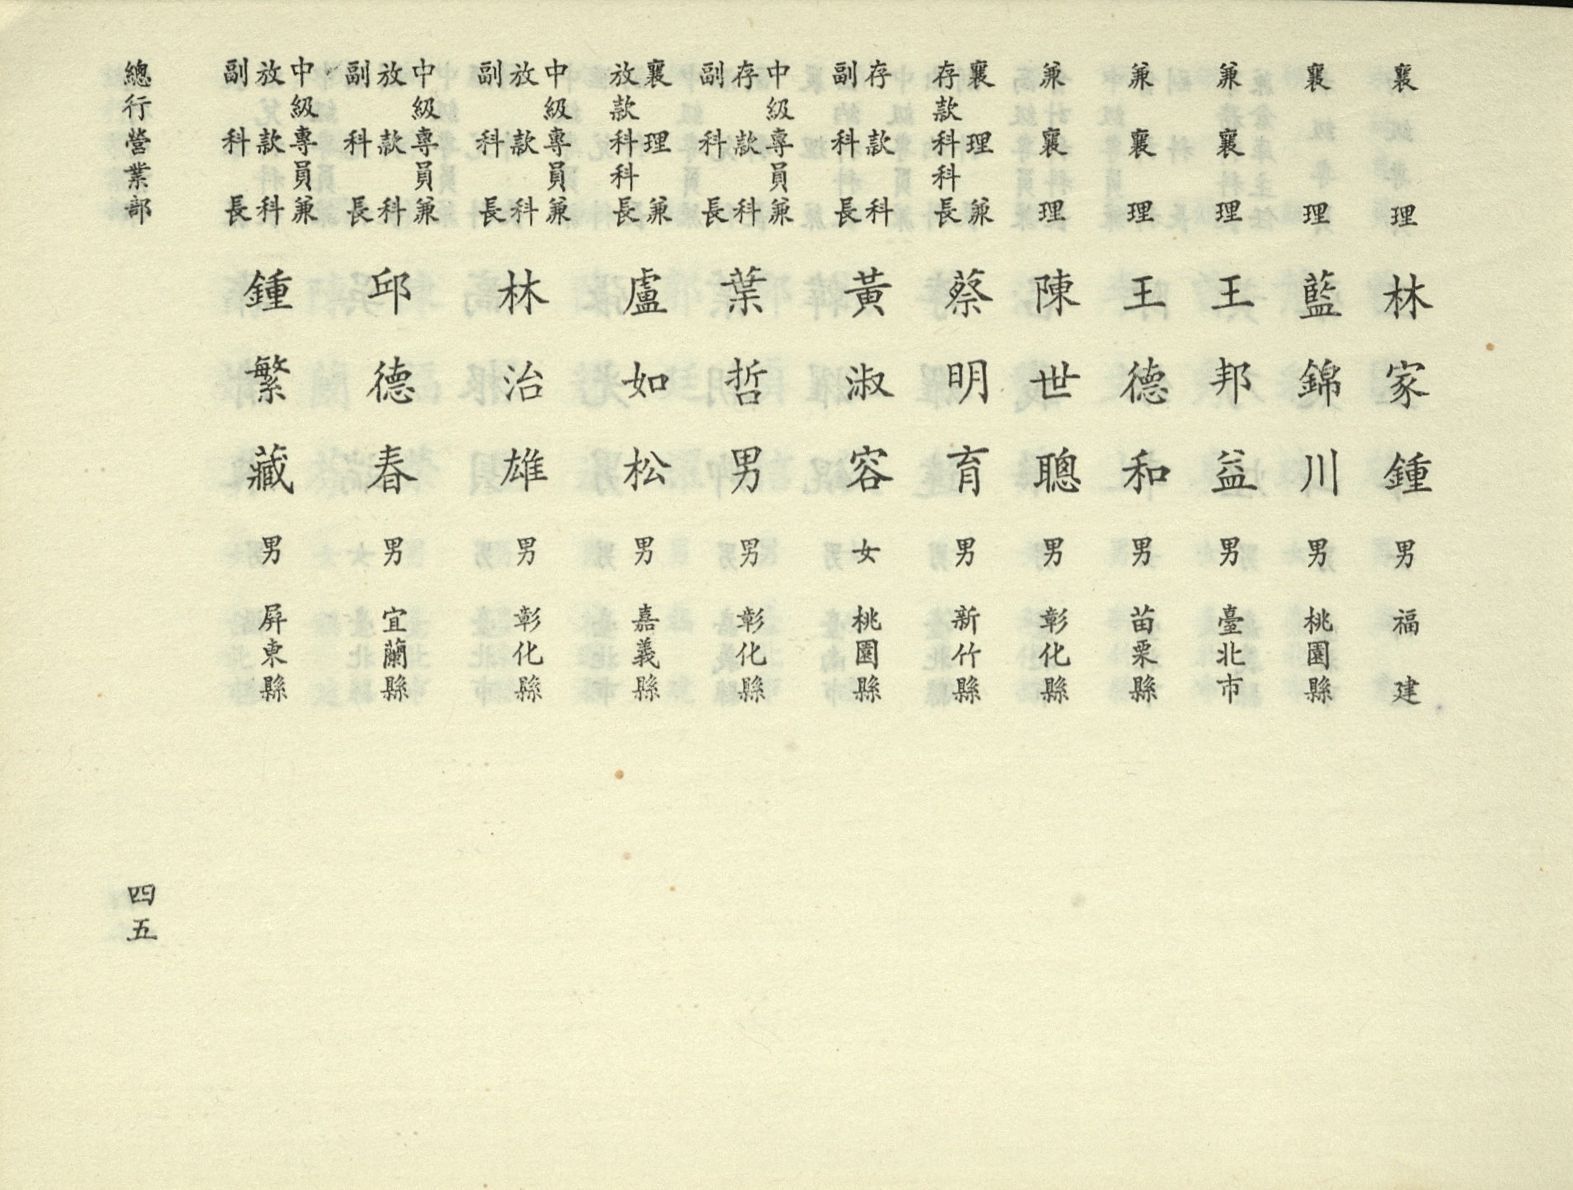 襄理 林家鍾 男 福建
襄理 藍錦川 男 桃園縣
兼襄理 王邦益 男 臺北市
兼襄理 王德和 男 苗栗縣
兼襄理 陳世聰 男 彰化縣
襄理兼存款科科長 蔡明育 男 新竹縣
存款科副科長 黃淑容 女 桃園縣
中級專員兼存款科副科長 葉哲男 男 彰化縣
襄理兼放款科科長 盧如松 男 嘉義縣
中級專員兼放款科副科長 林治雄 男 彰化縣
中級專員兼放款科副科長 邱德春 男 宜蘭縣
中級專員兼放款科副科長 鍾繁藏 男 屏東縣
總行營業部
四五